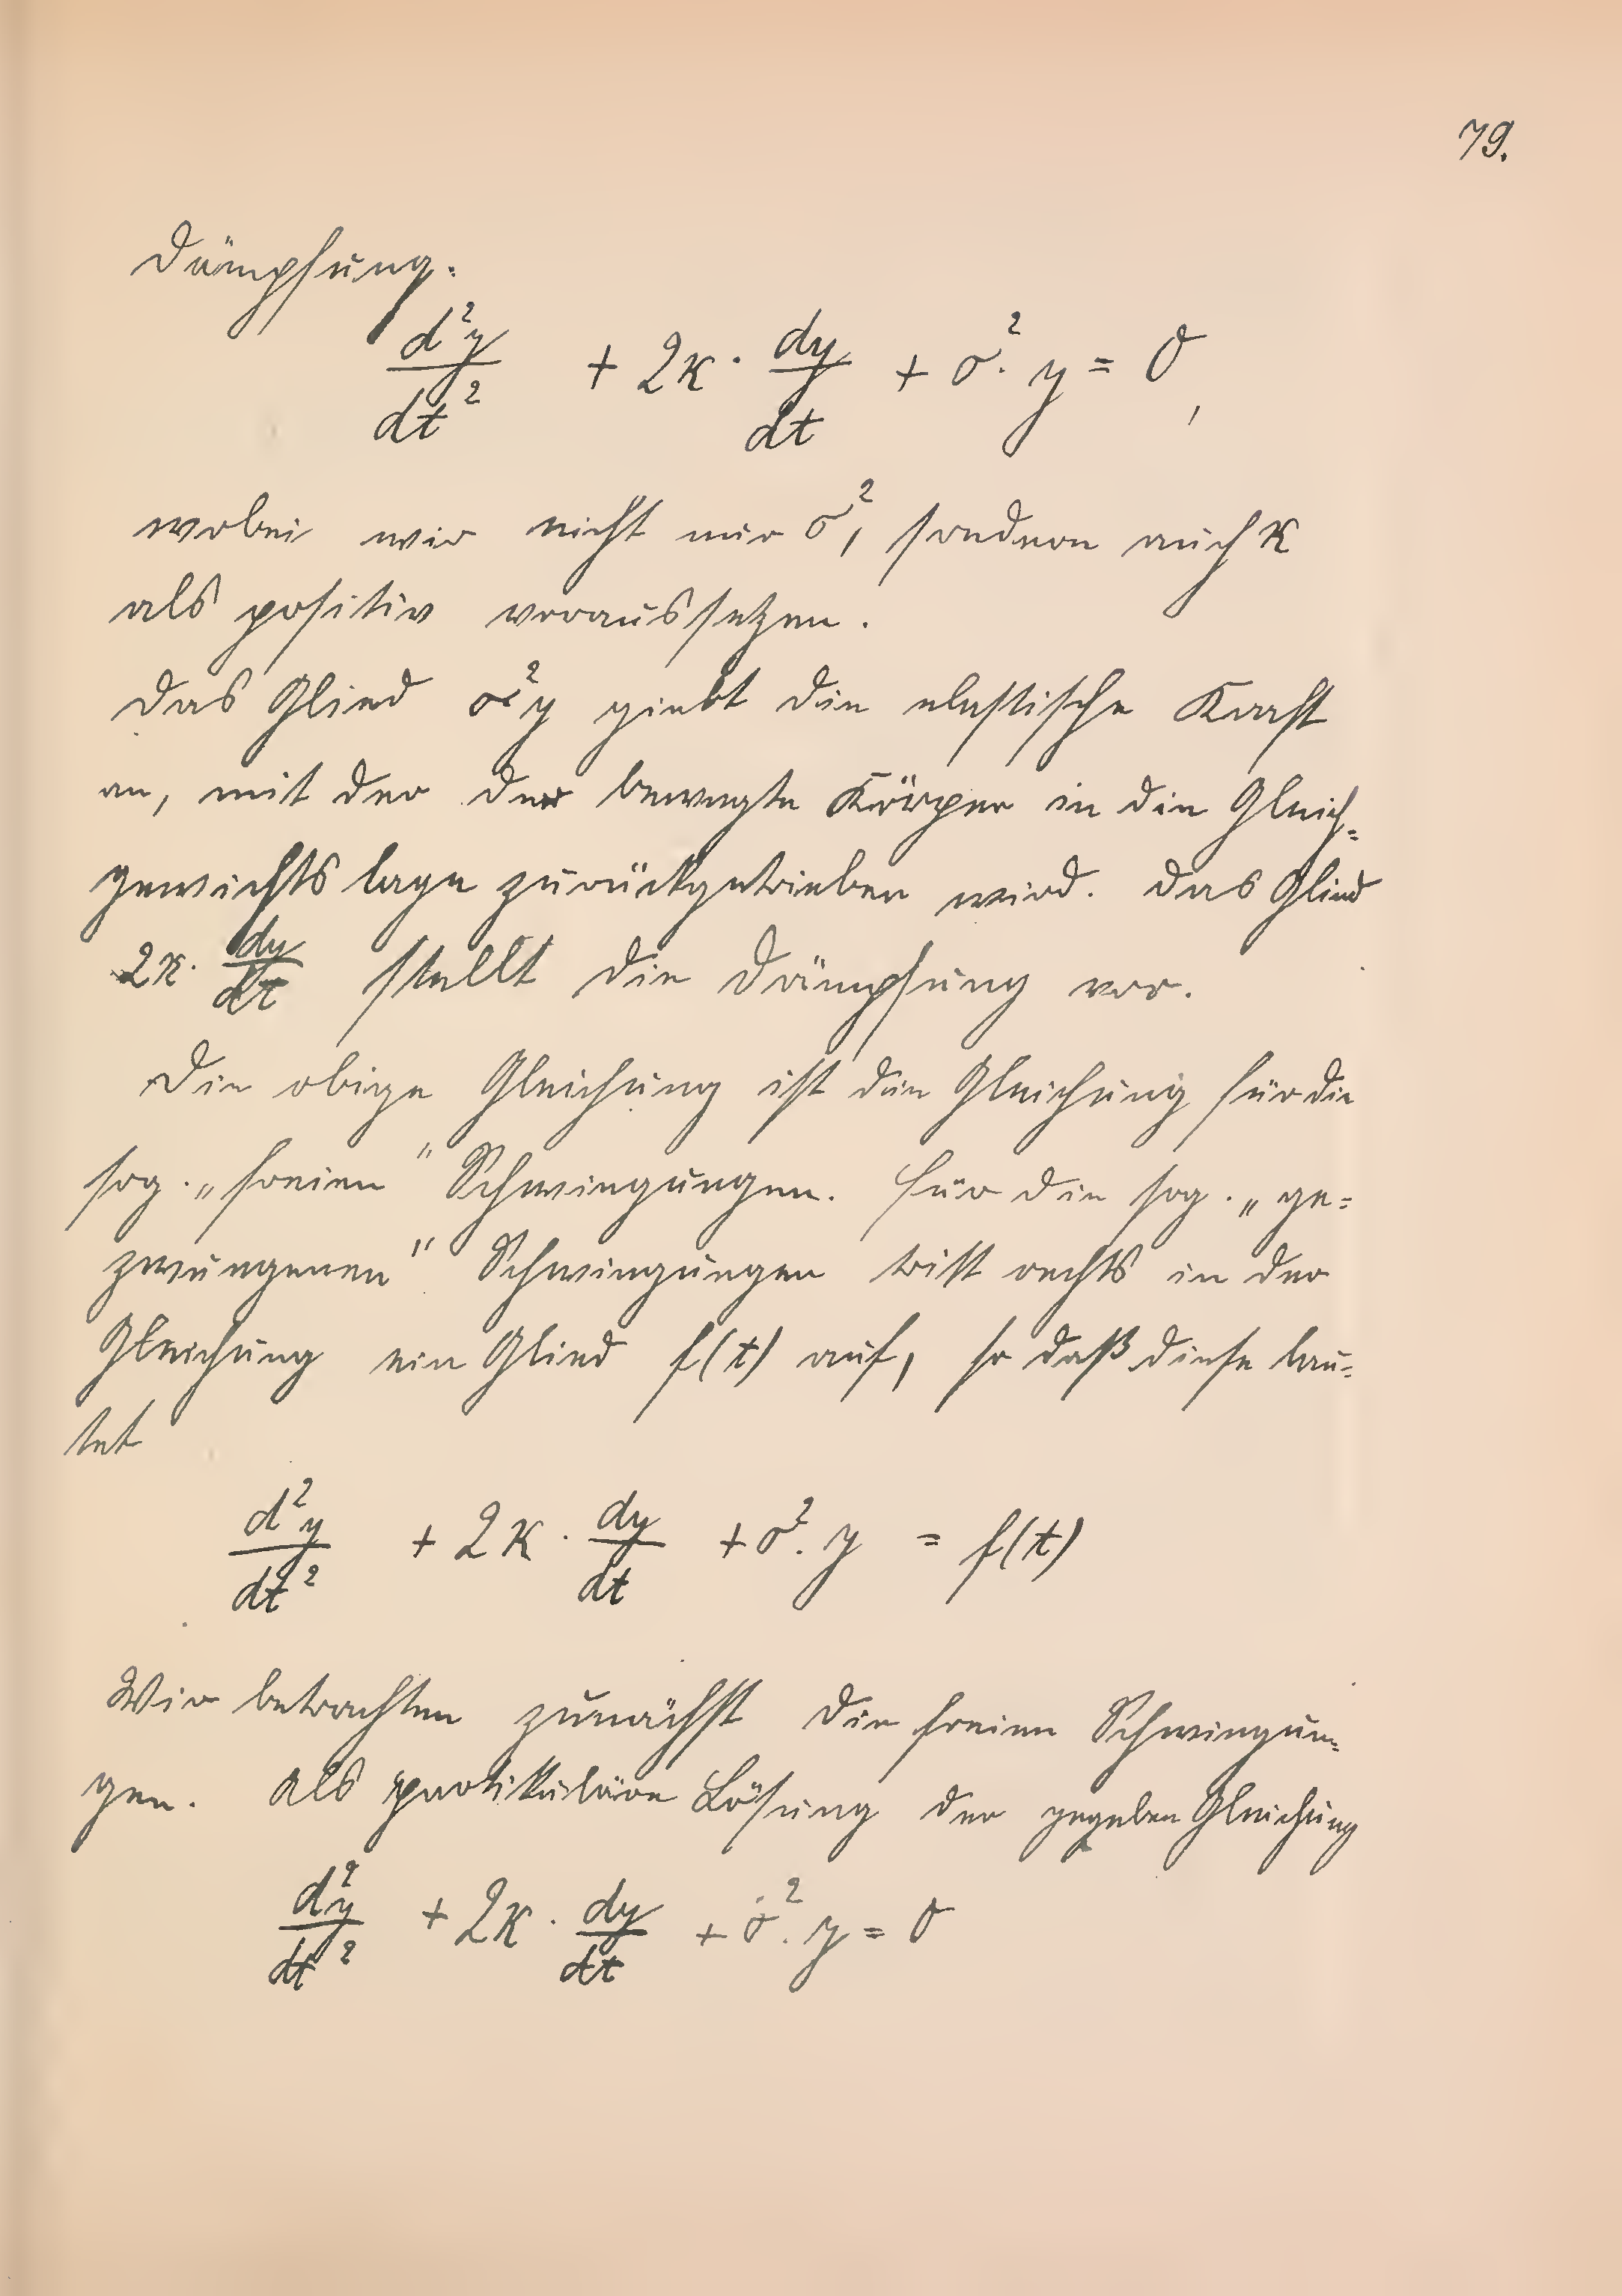 79.
Dämpfung:
d²y/dt² + 2κ · dy/dt + σ² · y = 0,
wobei wir nicht nur σ², sondern auch κ
als positiv voraussetzen.
Das Glied σ²y giebt die elastische Kraft
an, mit der der bewegte Körper in die Gleich=
gewichtslage zurückgetrieben wird. Das Glied
2κ · dy/dt stellt die Dämpfung vor.
Die obige Gleichung ist die Gleichung für die
sog. „freien" Schwingungen. Für die sog. „ge=
zwungenen" Schwingungen tritt rechts in der
Gleichung ein Glied f(t) auf, so daß diese lau=
tet
d²y/dt² + 2κ · dy/dt + σ² · y = f(t)
Wir betrachten zunächst die freien Schwingun=
gen. Als partikuläre Lösung der gegeben Gleichung
d²y/dt² + 2κ · dy/dt + σ² · y = 0